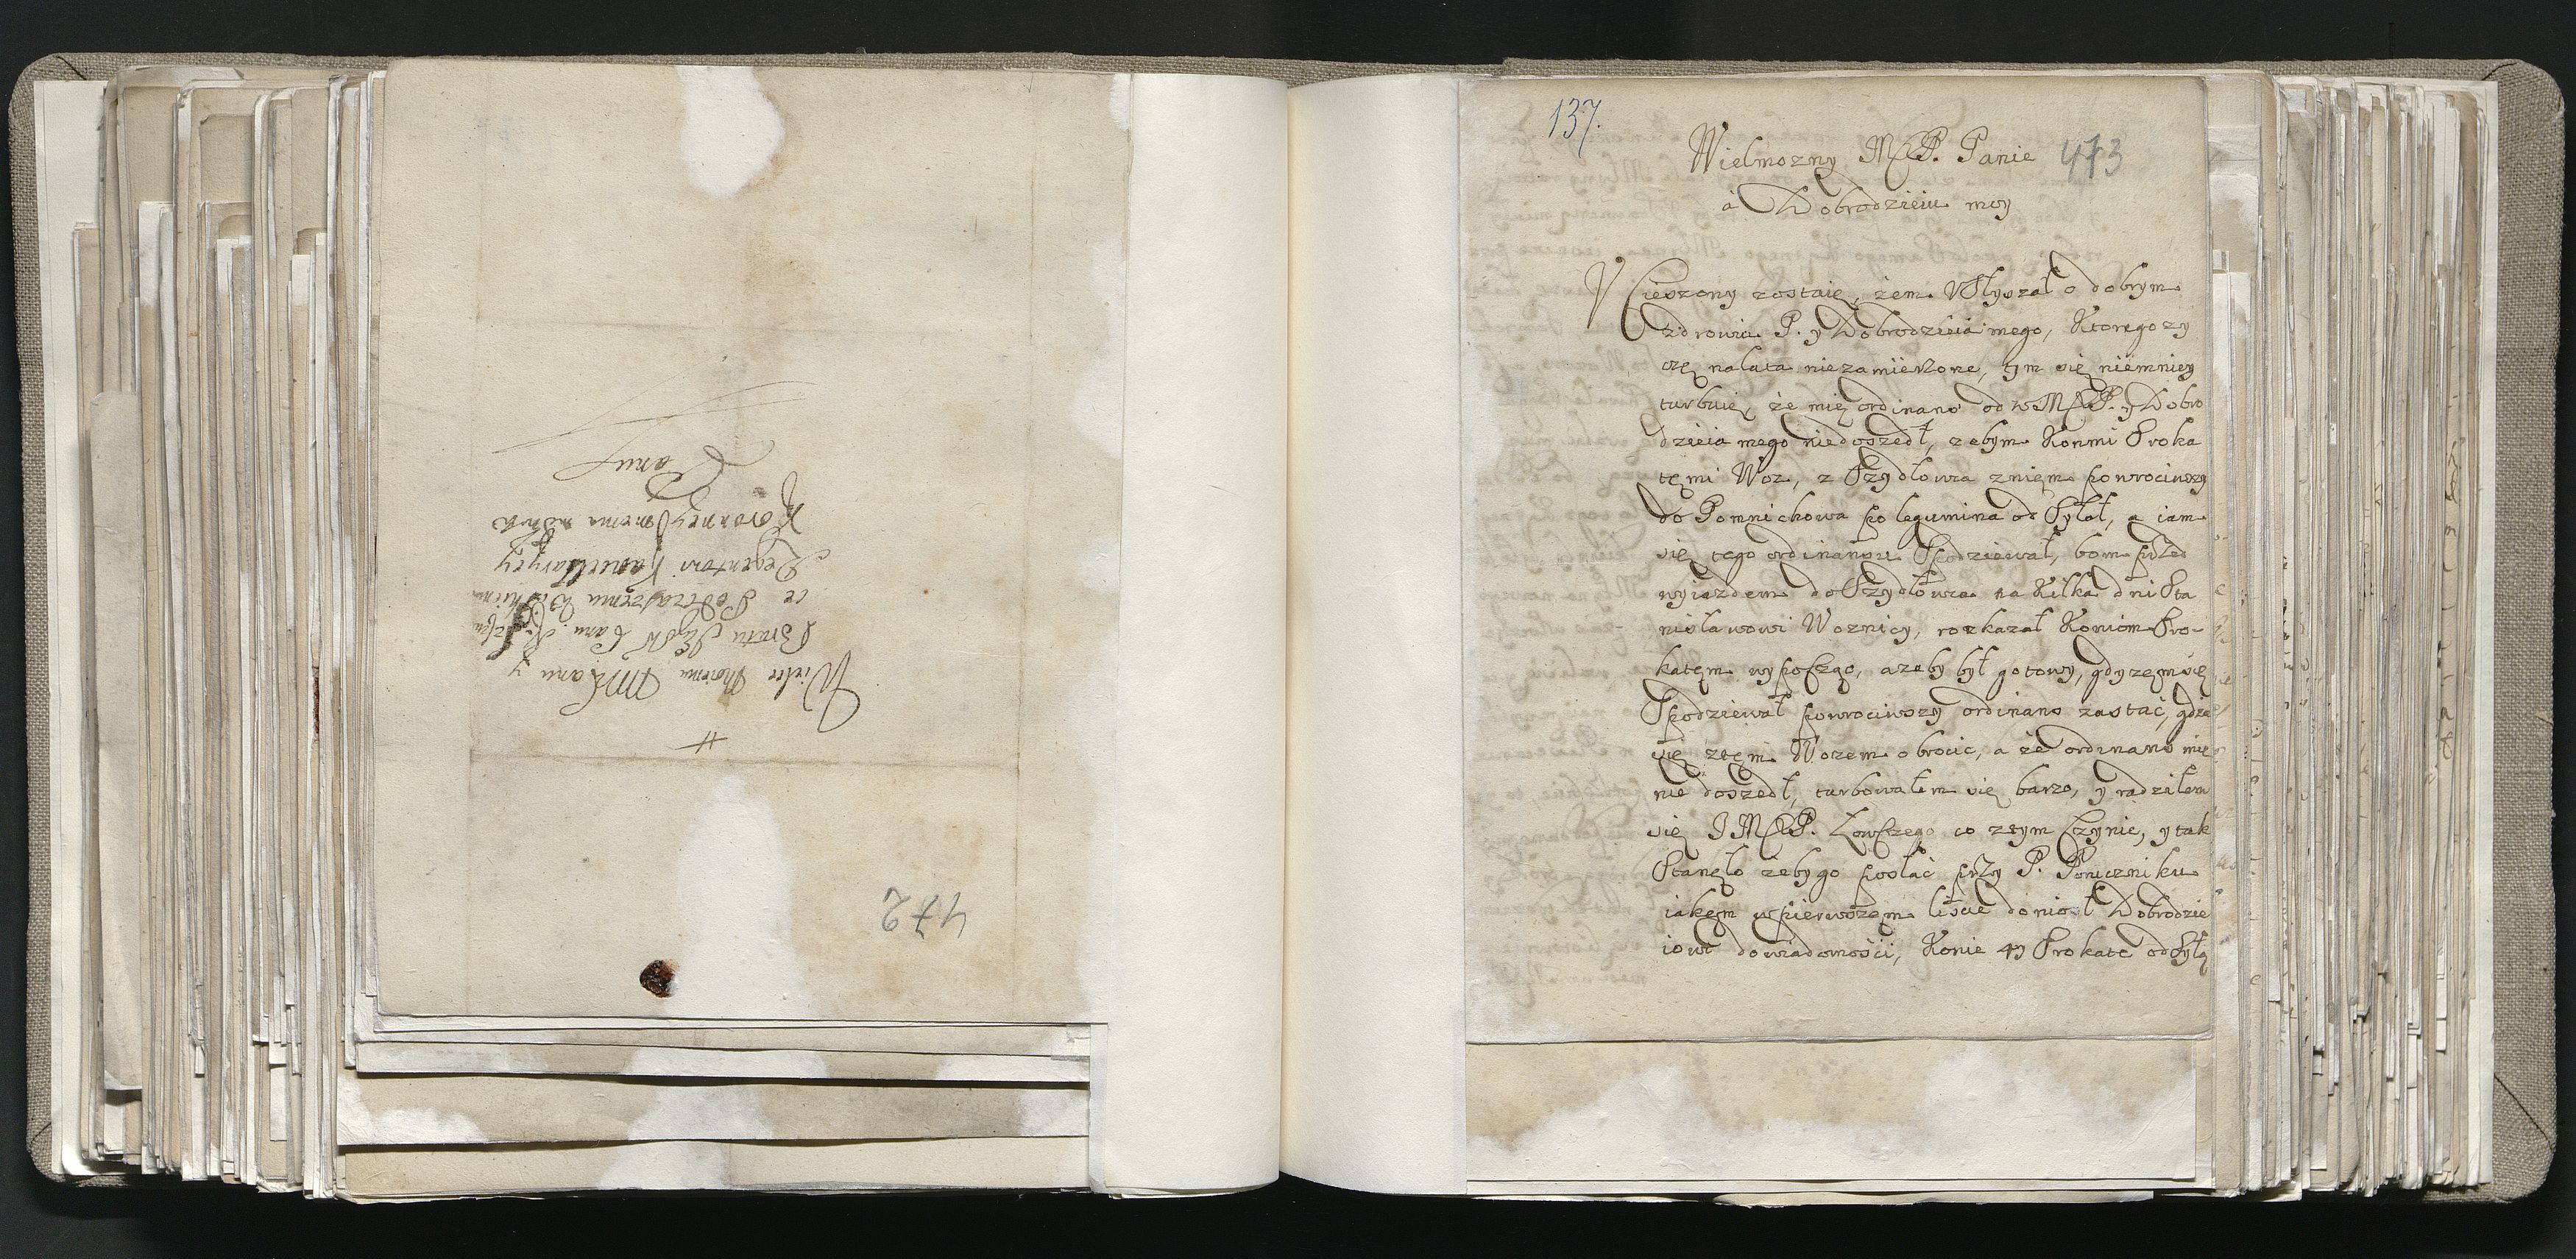 472
#
Wielce Memu MPanu y
Bratu JegoM Panu
ce Podczaszemu
Regentowi Kancellaryey
Koronney
Panu
137.
473
Wielmozny MP. Panie
a Dobrodzieiu moy
VCieszony zostaię, żem Vsłyszał o dobrym
zdrowiu P. y Dobrodzieia mego, Ktorego zy
czę na lata niezamierzone, tym się niemniey
turbuię, że mię ordinans od WMMP. y Dobro
dzieia mego niedoszedł, zebym Konmi Sroka
tęmi Woz, z Szydłowa znięm powrociwszy
do Pomnichowa po legumina odsyłał, a iam
się tego ordinansu Spodziewał, bom przed
wyiazdem do Szydłowa na Kilka dni Sta
nisławowi Woznicy, rozkazał Koniom Sro-
katęm wypoſzge, azeby był gotowy, gdyzęm się
Spodziewał powrociwszy ordinans zastać, gdzie
się ztęm Wozem obrocic, a że ordinans mię
nie doszedł, turbowałem się barzo, y radziłem
się JMP. Łowſzego co ztym Czynic, y tak
Stanęło żeby go posłać przy P. Poruczniku
iakęm wpierwszem liście doniosł Dobrodzie
iowi dowiadomości, Konie 4y Srokate odsyłą